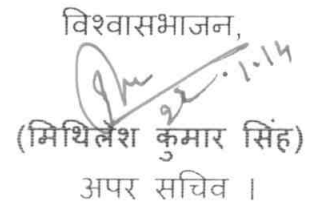 विश्वासभाजन,
(मिथिलेश कुमार सिंह)
अपर सचिव ।